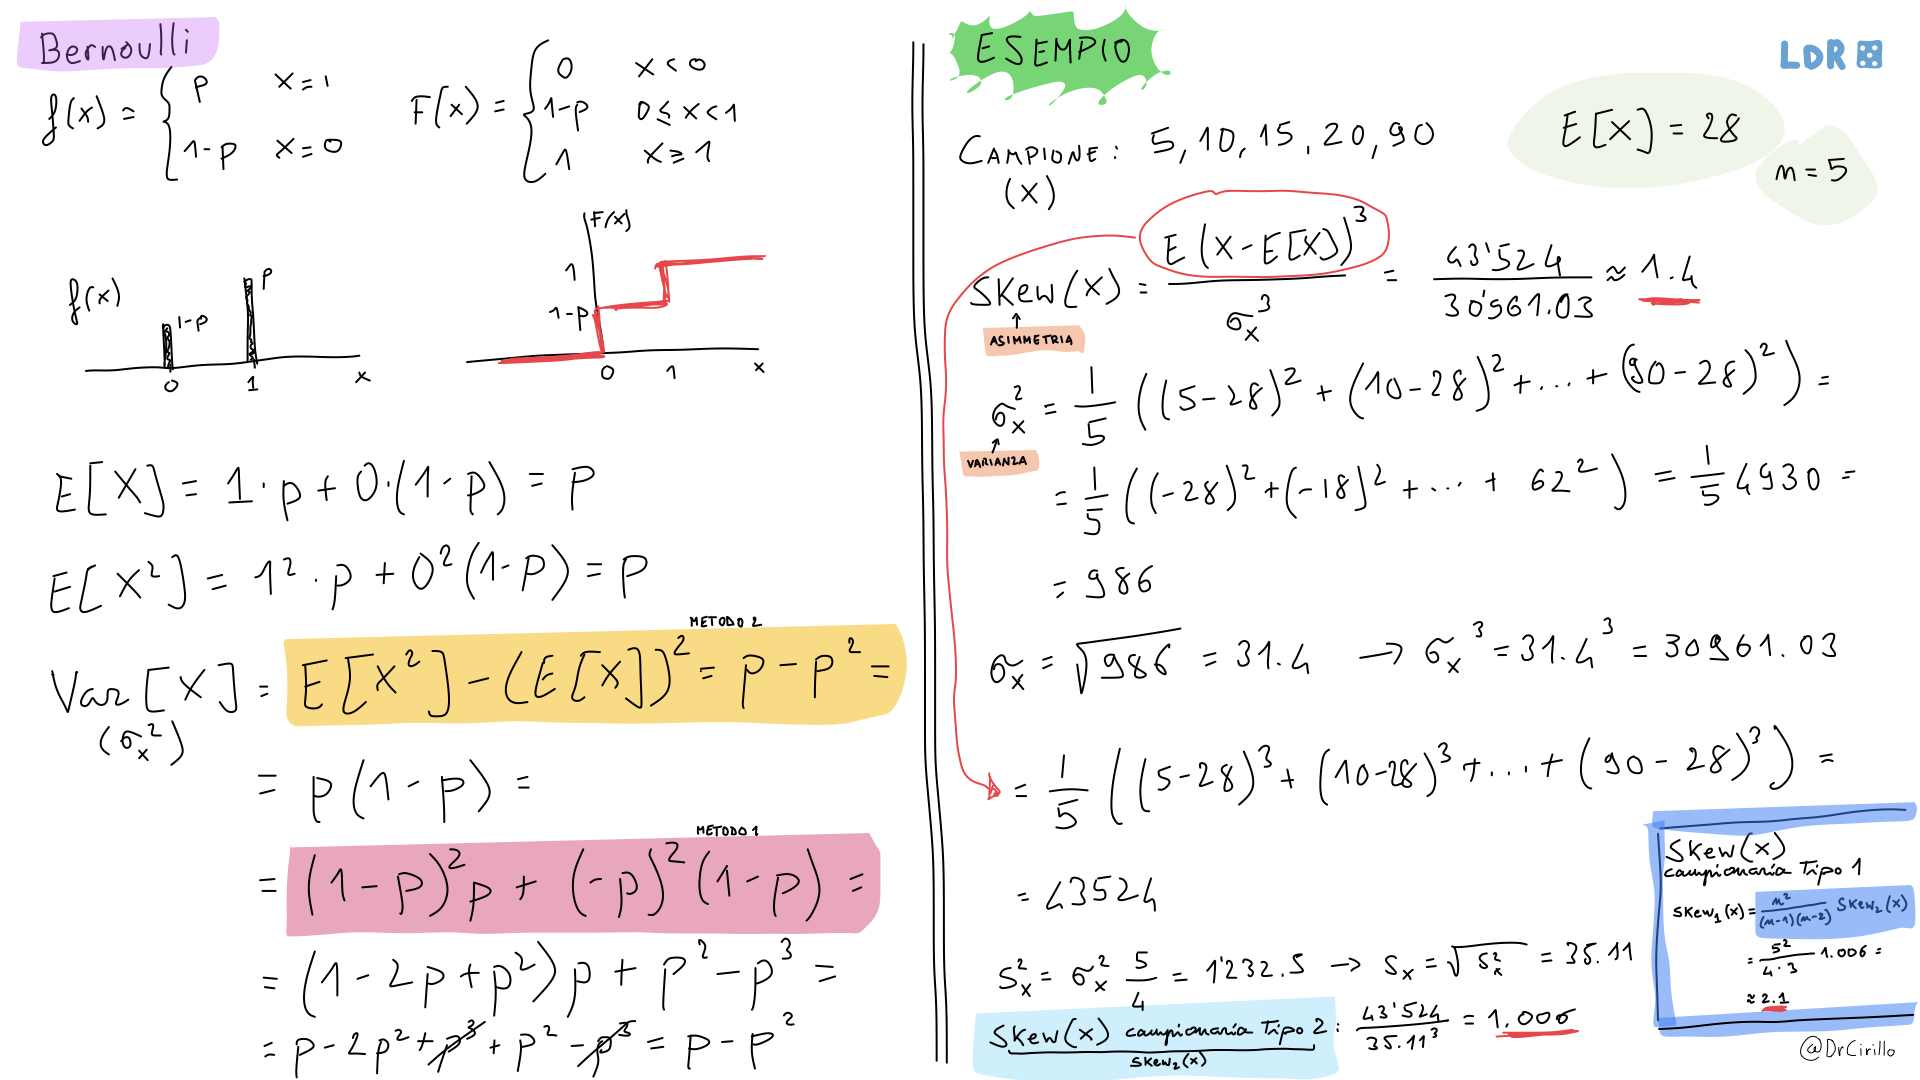 Bernoulli
f(x) = { p x=1
1-p x=0
F(x) = { 0 x<0
1-p 0≤x<1
1 x≥1
f(x)
1-p
p
0 1 x
F(x)
1
1-p
0 1 x
E[X] = 1·p + 0·(1-p) = p
E[X²] = 1²·p + 0²(1-p) = p
METODO 2
Var[X] = E[X²] - (E[X])² = p - p² =
(σx²)
= p(1-p) =
METODO 1
= (1-p)²p + (-p)²(1-p) =
= (1-2p+p²)p + p²-p³ =
= p-2p²+p³+p²-p³ = p-p²
ESEMPIO
LDR
CAMPIONE: 5, 10, 15, 20, 90
(X)
E[X] = 28
n = 5
Skew(X) = E(X-E[X])³ / σx³ = 43'524 / 30'961.03 ≈ 1.4
ASIMMETRIA
σx² = 1/5 ((5-28)² + (10-28)² + ... + (90-28)²) =
VARIANZA
= 1/5 ((-28)² + (-18)² + ... + 62²) = 1/5 4930 =
= 986
σx = √986 = 31.4 → σx³ = 31.4³ = 30961.03
= 1/5 ((5-28)³ + (10-28)³ + ... + (90-28)³) =
= 43524
Sx² = σx² 5/4 = 1'232.5 → Sx = √Sx² = 35.11
Skew(X) campionaria Tipo 2 : 43'524 / 35.11³ = 1.006
Skew₂(x)
Skew(X)
campionaria Tipo 1
Skew₁(x) = n² / (n-1)(n-2) Skew₂(x)
= 5² / 4·3 1.006 =
≈ 2.1
@DrCirillo